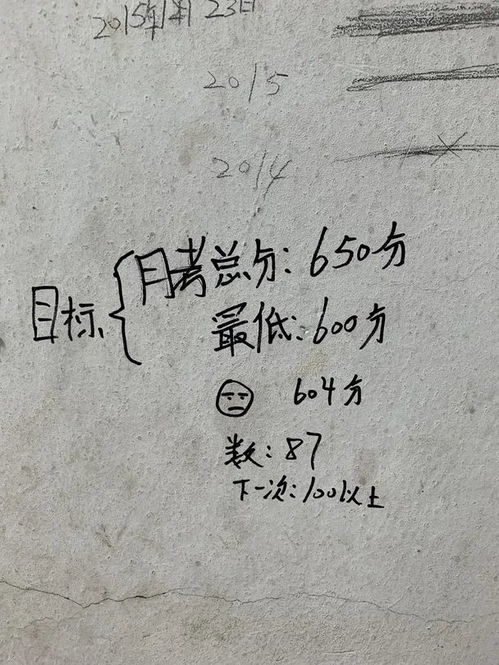 2015年1月23日
2015
2014
目标{月考总分:650分
最低:600分
604分
数:87
下一次:100以上